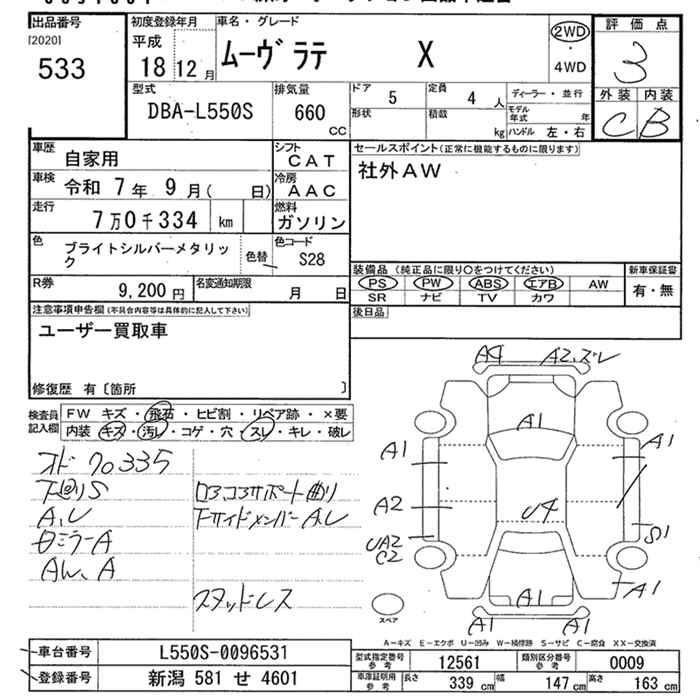 出品番号 初度登録年月 車名・グレード 評価点
[2020] 平成
533 18 12月 ムーヴラテ X 2WD 3
4WD
型式 排気量 ドア 5 定員 4人 ディーラー・並行 外装 内装
DBA-L550S 660 形状 積載 モデル年式 年 C B
CC kg ハンドル 左・右
車歴 自家用 シフト CAT セールスポイント(正常に機能するものに限ります)
車検 令和 7年 9月( 日) 冷房 AAC 社外AW
走行 7万0千334 km 燃料 ガソリン
色 ブライトシルバーメタリック 色替 色コード S28
装備品 (純正品に限り〇をつけてください) 新車保証書
PS PW ABS エアB AW 有・無
R券 9,200円 名変通知期限 月 日 SR ナビ TV カワ
注意事項申告欄(不具合内容等は具体的に記入して下さい) 後日品
ユーザー買取車
修復歴 有〔箇所 〕
検査員記入欄 FW キズ・飛石・ヒビ割・リペア跡・×要
内装 キズ・汚レ・コゲ・穴・スレ・キレ・破レ
A4 A2.ズレ
A1
A1 A1
A2 U4
UA2 S1
C2
A1 A1
A1 A1
スペア
オド 70335
下回りS ロアコアサポート曲り
A,U 下サイドメンバーA,U
ミラーA
AW、A
スタッドレス
A-キズ E-エクボ U-凹み W-補修跡 S-サビ C-腐食 XX-交換済
車台番号 L550S-0096531 型式指定番号 参考 12561 類別区分番号 参考 0009
登録番号 新潟 581 せ 4601 車庫証明用 参考 長さ 339cm 幅 147cm 高さ 163cm